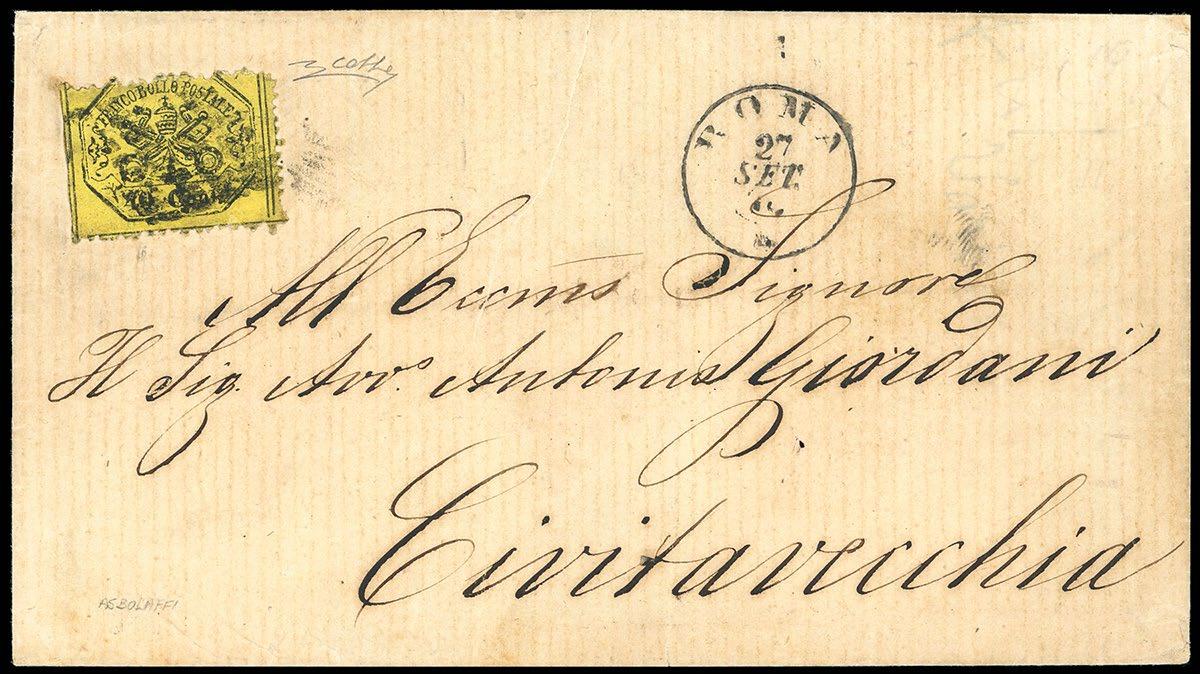 FRANCO BOLLO POSTALE
ROMA
27
SET.
All Eccmo Signore
Il Sig. Avv.o Antonio Giordani
Civitavecchia
ASBOLAFFI